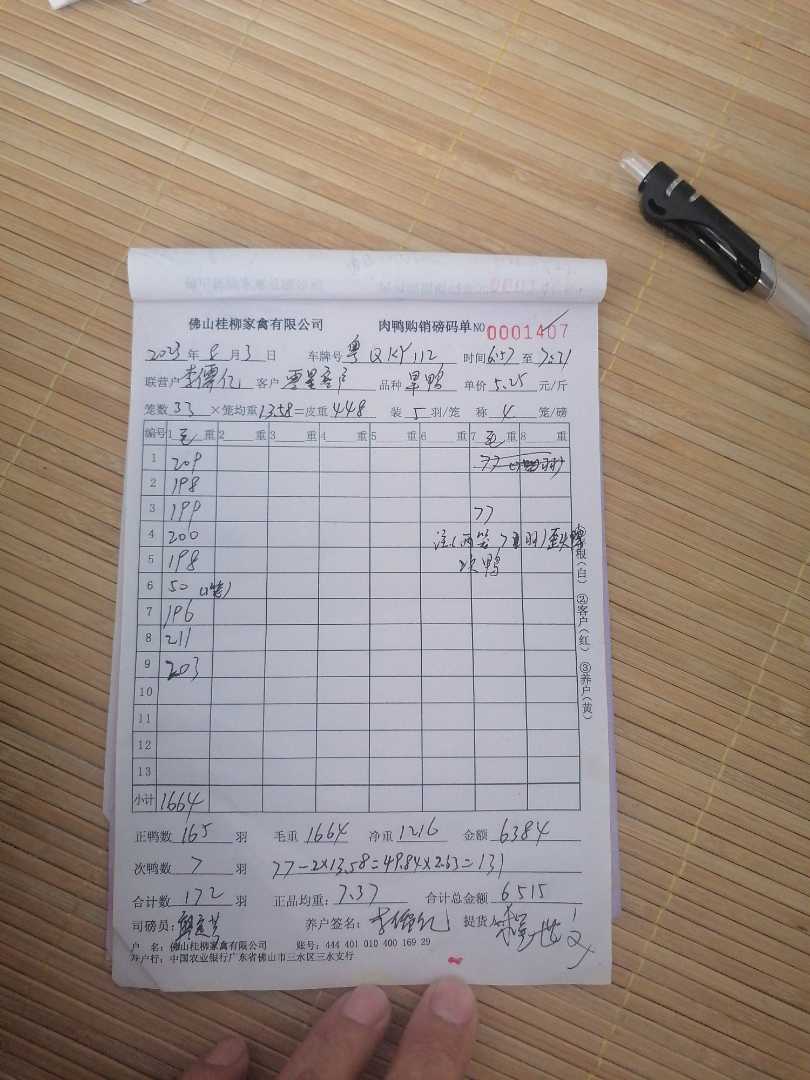 佛山桂柳家禽有限公司 肉鸭购销磅码单 NO 0001407
2023年8月3日 车牌号 粤QKY112 时间 6:57 至 7:31
联营户 李儒亿 客户 零星客户 品种 旱鸭 单价 5.25 元/斤
笼数 33 ×笼均重 13.58 =皮重 448 装 5 羽/笼 称 4 笼/磅
编号 1 毛 重 2 重 3 重 4 重 5 重 6 重 7 毛 重 8 重
1 209 77
2 198
3 199 77
4 200 注(两笼7羽)歪头鸭
5 198 次鸭
6 50 (1笼)
7 196
8 211
9 203
10
11
12
13
小计 1664
根(白) ②客户(红) ③养户(黄)
正鸭数 165 羽 毛重 1664 净重 1216 金额 6384
次鸭数 7 羽 77-2×13.58=49.84×2.63=131
合计数 172 羽 正品均重: 7.37 合计总金额 6515
司磅员: 养户签名: 提货人
户 名: 佛山桂柳家禽有限公司 账号: 444 401 010 400 169 29
开户行: 中国农业银行广东省佛山市三水区三水支行